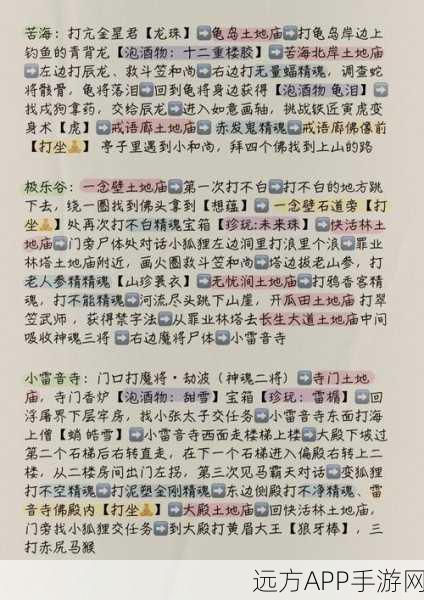 苦海：打亢金星君【龙珠】➡龟岛土地庙➡打龟岛岸边上
钓鱼的青背龙【泡酒物：十二重楼胶】➡苦海北岸土地庙
➡左边打辰龙、救斗笠和尚➡右边打无量蝠精魂，调查蛇
将骸骨，龟将落泪➡回到龟将身边获得【泡酒物 龟泪】➡
找戌狗拿药，交给辰龙➡进入如意画轴，挑战铁匠寅虎变
身术【虎】➡戒语廊土地庙➡赤发鬼精魂➡戒语廊佛像前
【打坐🧘】亭子里遇到小和尚，拜四个佛找到上山的路
极乐谷：一念壁土地庙➡第一次打不白➡打不白的地方跳
下去，绕一圈找到佛头拿到【想蕴】➡一念壁石道旁【打
坐🧘】处再次打不白精魂宝箱【珍玩:未来珠】➡快活林土
地庙➡门旁尸体处对话小狐狸左边洞里打浪里个浪➡罪业
林塔土地庙附近，画火圈救斗笠和尚➡塔边拔老山参，打
老人参精精魂【山珍蓑衣】➡无忧涧土地庙➡打鸦香客精
魂，打不能精魂➡河流尽头跳下山崖，开瓜田土地庙 打翠
笠武师 ，获得禁字法➡从罪业林塔去长生大道土地庙中间
吸收神魂三将➡右边魔将尸体➡小雷音寺
小雷音寺：门口打魔将·劫波（神魂二将）➡寺门土地
庙，寺门香炉【泡酒物：甜雪】宝箱【珍玩：雷榍】➡回
浮屠界下层牢房，找小张太子交任务➡小雷音寺东面打海
上僧【蛸 皓雪】➡小雷音寺西面走楼梯上楼➡大殿下坡过
第二个石梯后右转直走，在下一个石梯进入偏殿右转上二
楼，从二楼房间出门左拐，第三次见马霸天对话➡变狐狸
打不空精魂➡打泥塑金刚精魂➡东边侧殿打不净精魂、雷
音寺佛殿内【打坐🧘】➡大殿土地庙➡回快活林土地庙，
门旁找小狐狸交任务➡到大殿打黄眉大王【狼牙棒】，三
打赤尻马猴
远方APP手游网